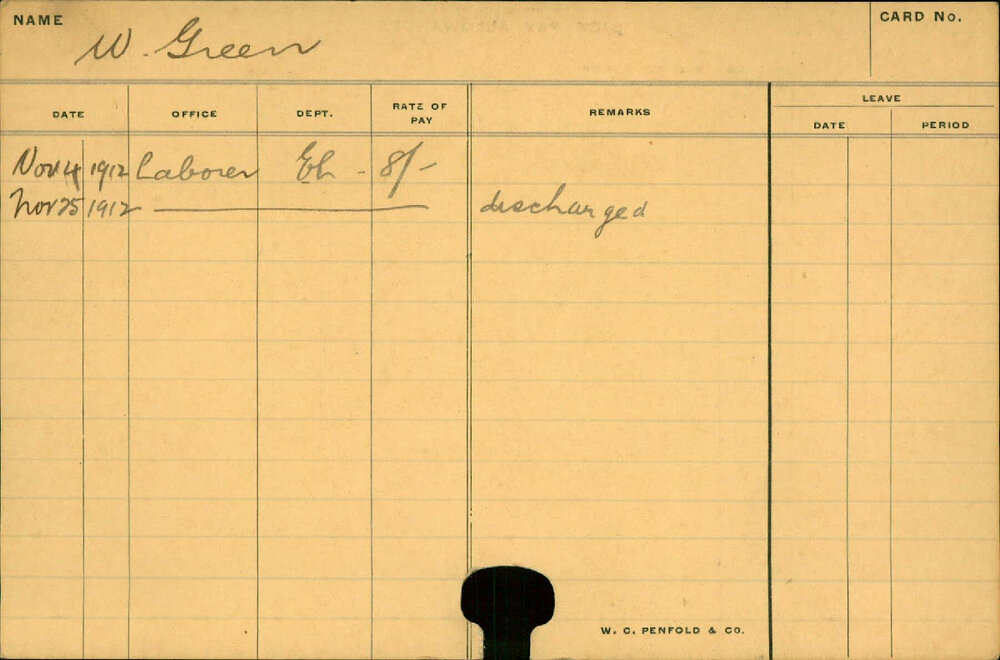 NAME W. Green CARD No.
LEAVE
DATE OFFICE DEPT. RATE OF PAY REMARKS DATE PERIOD
Nov 4 1912 Laborer - 8/-
Nov 25 1912 discharged
W. C. PENFOLD & CO.